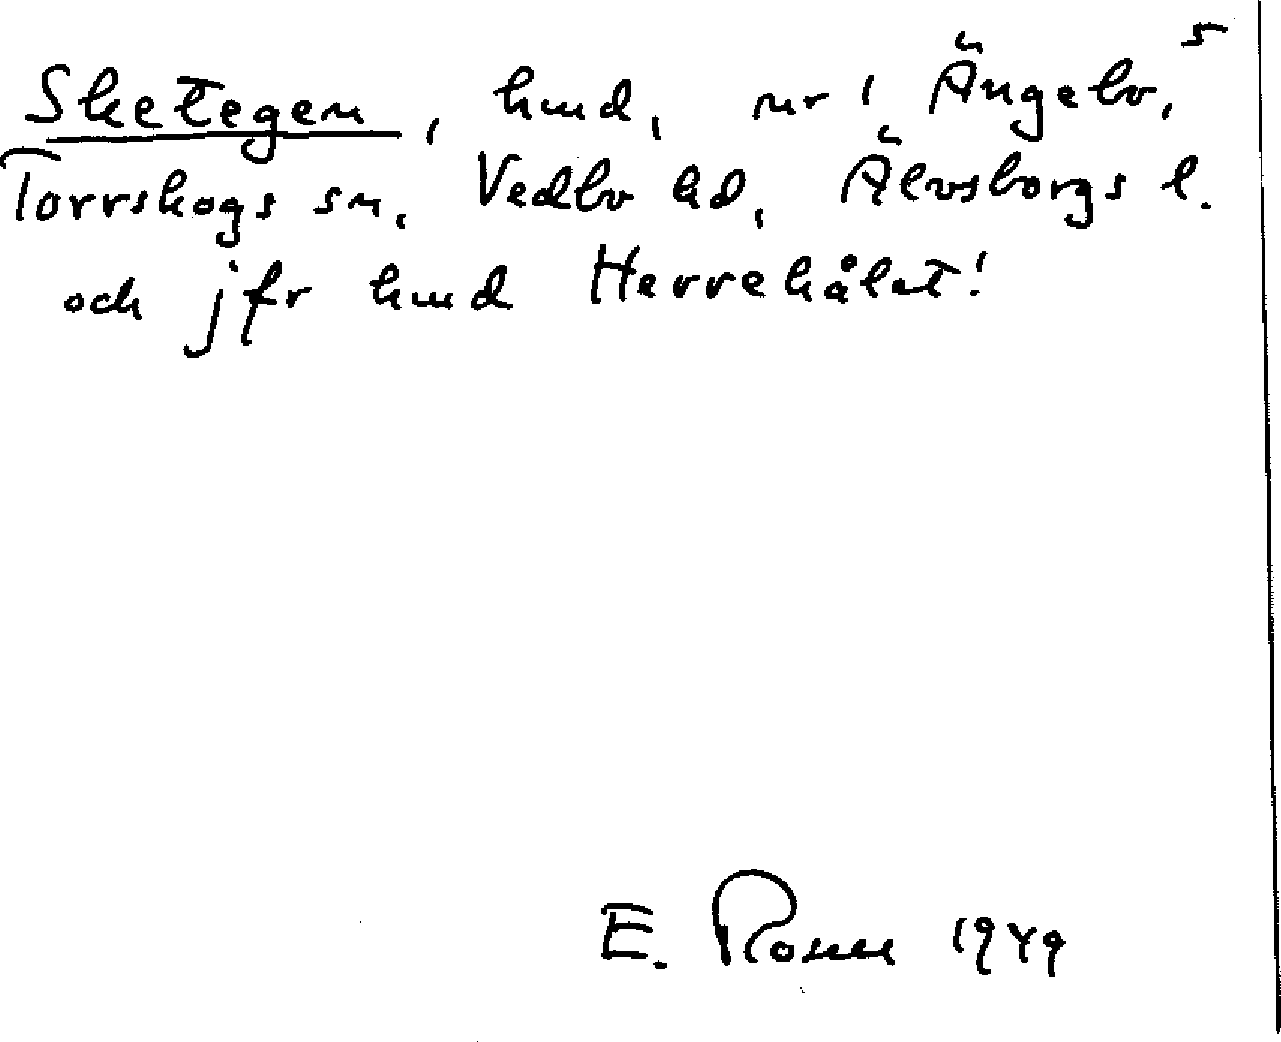 5
Sketegen, hmd, nr 1 Ängebo,
Torrskogs sn, Vedbo hd, Älvsborgs l.
och jfr hmd Herrehålet!
E. Rosell 1949